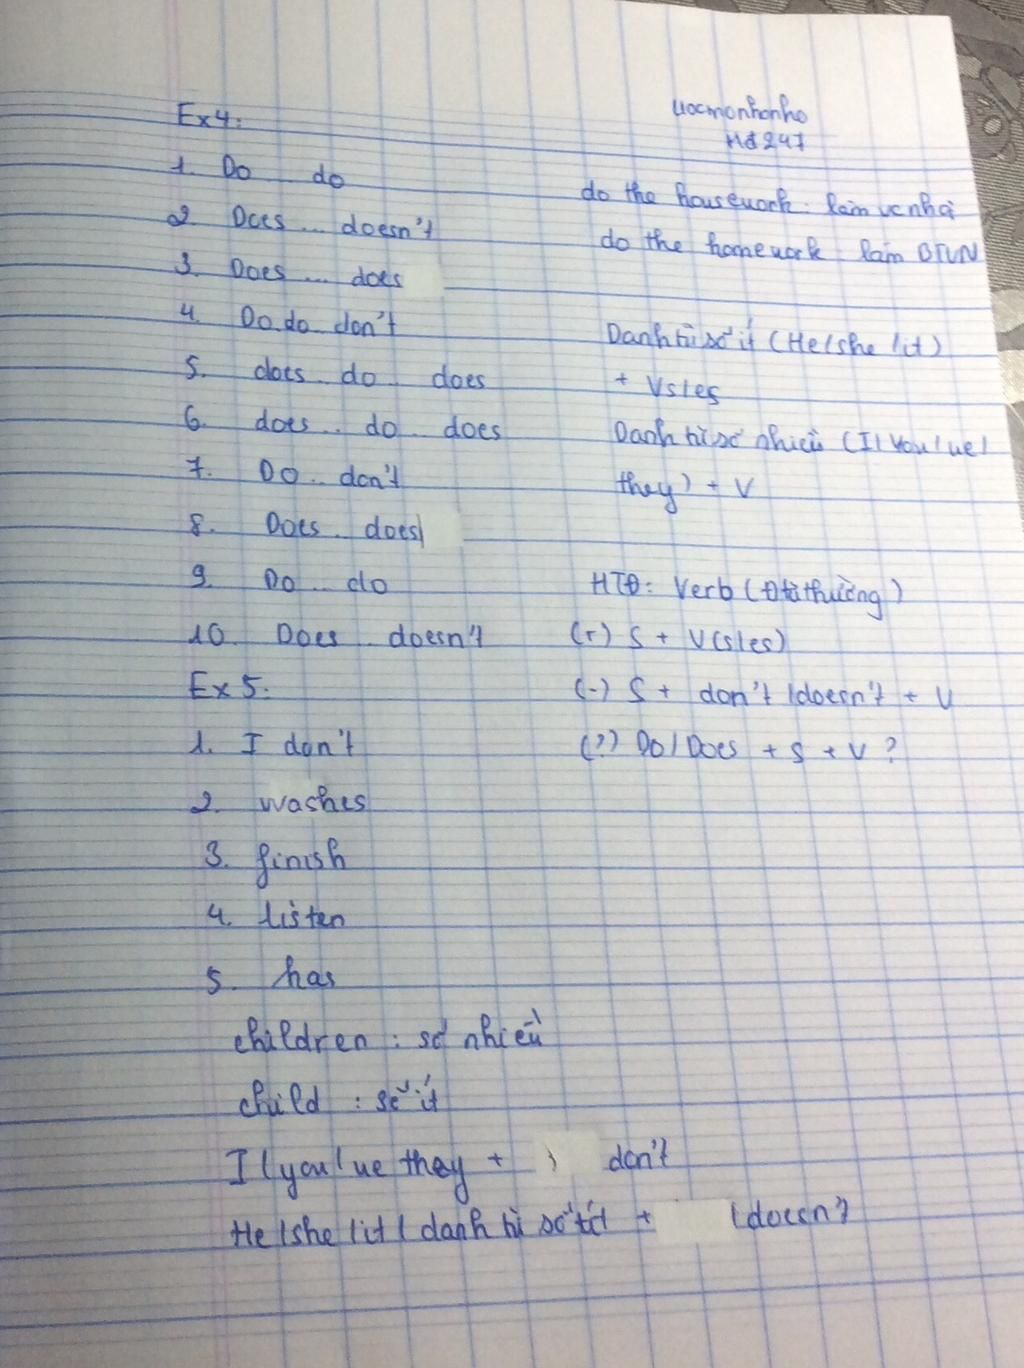 Ex4:
1. Do do
2. Does ... doesn't
3. Does ... does
4. Do do don't
5. does do does
6. does .. do does
7. Do .. don't
8. Does .. does
9. Do ... do
10. Does .. doesn't
Ex 5:
1. I don't
2. washes
3. finish
4. listen
5. has
children : số nhiều
child : số ít
I / you / we they + don't
He / she / it / danh từ số ít + / doesn't
uocmonhonho
Hd 247
do the housework : làm vc nhà
do the homework làm BTVN
Danh từ số ít (He / she / it)
+ Vs/es
Danh từ số nhiều (I / you / we /
they) + V
HTĐ: Verb (Đtừ thường)
(+) S + V(s/es)
(-) S + don't / doesn't + V
(?) Do / Does + S + V ?